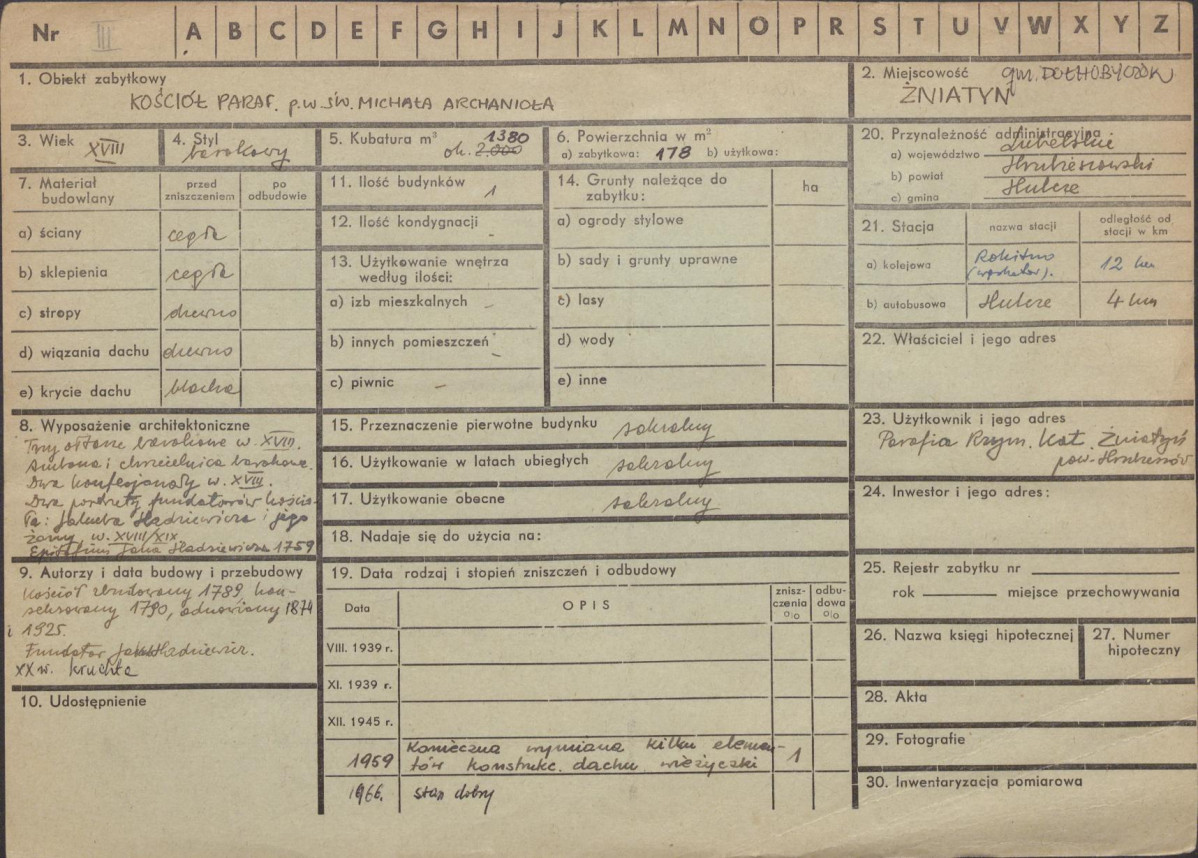 Nr III A B C D E F G H I J K L M N O P R S T U V W X Y Z
1. Obiekt zabytkowy
KOŚCIÓŁ PARAF. p.w. ŚW. MICHAŁA ARCHANIOŁA
2. Miejscowość gm. DOŁHOBYCZÓW
ŻNIATYN
3. Wiek XVIII
4. Styl
barokowy
5. Kubatura m³ 1380
ok. 2.000
6. Powierzchnia w m²
a) zabytkowa: 178 b) użytkowa:
7. Materiał budowlany
przed zniszczeniem
po odbudowie
a) ściany cegła
b) sklepienia cegła
c) stropy drewno
d) wiązania dachu drewno
e) krycie dachu blacha
8. Wyposażenie architektoniczne
Trzy ołtarze barokowe w. XVIII.
Ambona i chrzcielnica barokowe.
Dwa konfesjonały w. XVIII.
Dwa portrety fundatorów kościo-
ła: Jakuba Hładziewicza i jego
żony, w. XVIII/XIX
Epitafium Hładziewicza 1759
9. Autorzy i data budowy i przebudowy
Kościół zbudowany 1789, kon-
sekrowany 1790, odnowiony 1874
i 1925.
Fundator Jakub Hładziewicz.
XX w. kruchta
10. Udostępnienie
11. Ilość budynków 1
12. Ilość kondygnacji -
13. Użytkowanie wnętrza
według ilości:
a) izb mieszkalnych -
b) innych pomieszczeń -
c) piwnic -
14. Grunty należące do
zabytku:
ha
a) ogrody stylowe
b) sady i grunty uprawne
c) lasy
d) wody
e) inne
15. Przeznaczenie pierwotne budynku sakralny
16. Użytkowanie w latach ubiegłych sakralny
17. Użytkowanie obecne sakralny
18. Nadaje się do użycia na:
19. Data rodzaj i stopień zniszczeń i odbudowy
Data
OPIS
znisz-
czenia
%
odbu-
dowa
%
VIII. 1939 r.
XI. 1939 r.
XII. 1945 r.
1959 Konieczna wymiana kilku elemen-
tów konstrukc. dachu wieżyczki 1
1966. stan dobry
20. Przynależność administracyjna
a) województwo Lubelskie
b) powiat Hrubieszowski
c) gmina Hulcze
21. Stacja
nazwa stacji
odległość od
stacji w km
a) kolejowa Rokitno
12 km
b) autobusowa Hulcze 4 km
22. Właściciel i jego adres
23. Użytkownik i jego adres
Parafia Rzym. Kat. Żniatyń
pow. Hrubieszów
24. Inwestor i jego adres:
25. Rejestr zabytku nr
rok miejsce przechowywania
26. Nazwa księgi hipotecznej
27. Numer
hipoteczny
28. Akta
29. Fotografie
30. Inwentaryzacja pomiarowa